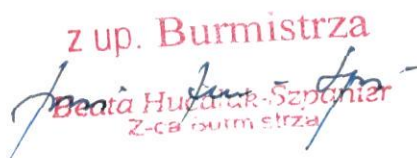 z up. Burmistrza
Beata Hucaluk-Szpanier
Z-ca Burmistrza